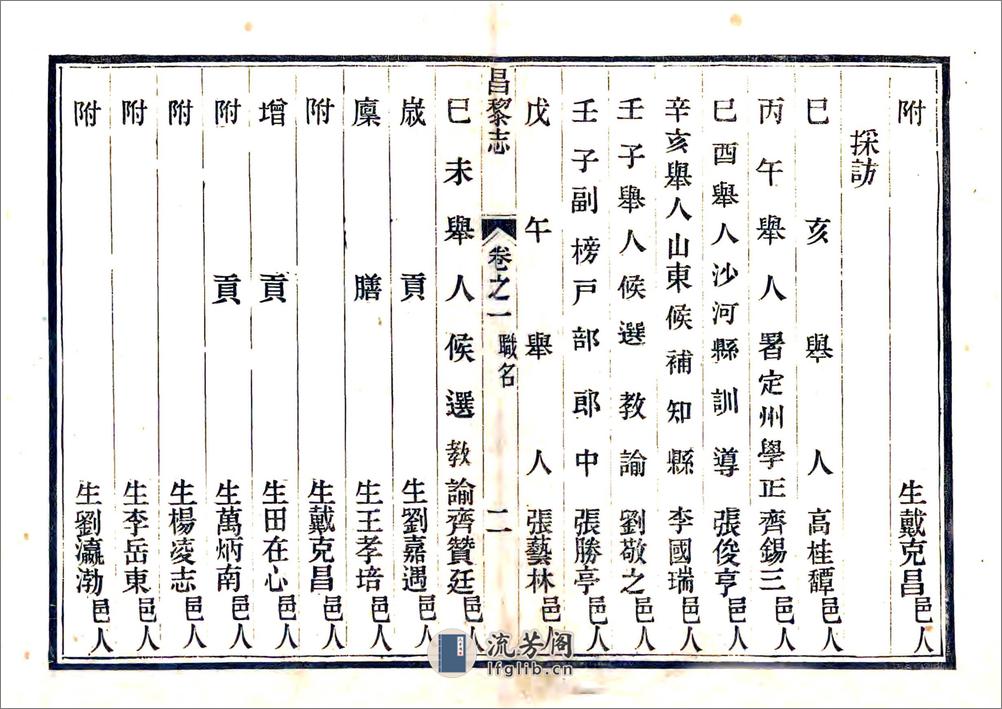 附生戴克昌邑人
採訪
巳亥舉人高桂邑人
丙午舉人署定州學正齊錫三邑人
巳酉舉人沙河縣訓導張俊亨邑人
辛亥舉人山東候補知縣李國瑞邑人
壬子舉人候選教諭劉敬之邑人
壬子副榜戸部郎中張勝亭邑人
戊午舉人張藝林邑人
昌黎志 卷之一 職名 二
巳未舉人候選教諭齊贊廷邑人
歲貢生劉嘉遇邑人
廩膳生王孝培邑人
附生戴克昌邑人
增貢生田在心邑人
附貢生萬炳南邑人
附生楊凌志邑人
附生李岳東邑人
附生劉瀛渤邑人
流芳阁
lfglib.cn